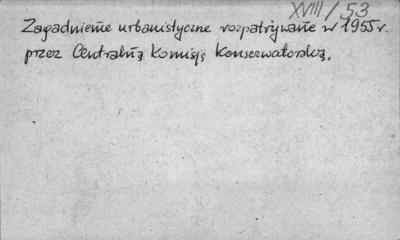 XVIII/53
Zagadnienie urbanistyczne rozpatrywane w 1955 r.
przez Centralną Komisję Konserwatorską.